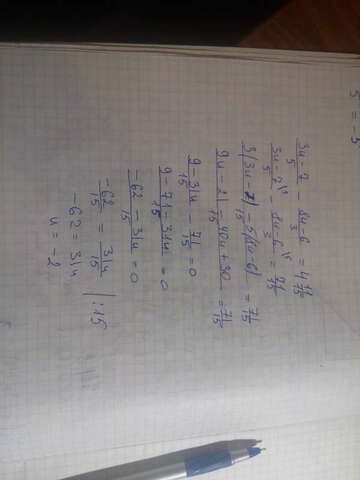 5 = -5
3u - 7/5 - 8u - 6/3 = 4 11/15
3u - 7/5 - 8u - 6/3 = 71/15
3(3u - 7) - 5(8u - 6)/15 = 71/15
9u - 21 - 40u + 30/15 = 71/15
9 - 31u/15 - 71/15 = 0
9 - 71 - 31u/15 = 0
-62 - 31u/15 = 0
-62/15 = 31u/15 | : 15
-62 = 31u
u = -2